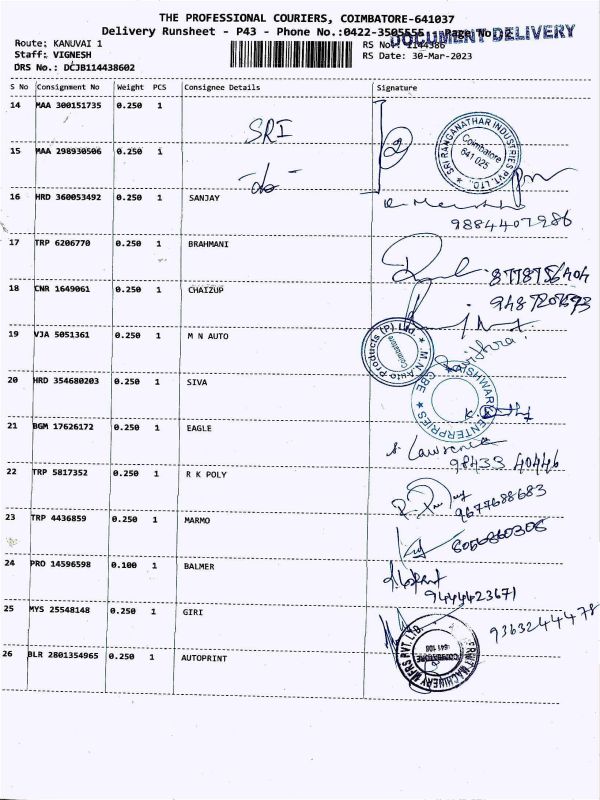 THE PROFESSIONAL COURIERS, COIMBATORE-641037
Delivery Runsheet - P43 - Phone No.:0422-3505556 - Page No. 2
DOCUMENT DELIVERY
Route: KANUVAI 1
RS No.: 1144386
Staff: VIGNESH
RS Date: 30-Mar-2023
DRS No.: DCJB114438602
S No Consignment No Weight PCS Consignee Details Signature
14 MAA 300151735 0.250 1 SRI
2
SRI RANGANATHAR INDUSTRIES PVT. LTD. Coimbatore 641 025
15 MAA 298930506 0.250 1 -do-
16 HRD 360053492 0.250 1 SANJAY
9884407986
17 TRP 6206770 0.250 1 BRAHMANI
8778756404
18 CNR 1649061 0.250 1 CHAIZUP
19 VJA 5051361 0.250 1 M N AUTO
M.N. Auto Products (P) Ltd. Coimbatore
20 HRD 354680203 0.250 1 SIVA
ENTERPRIES CBE
21 BGM 17626172 0.250 1 EAGLE
98433 40446
22 TRP 5817352 0.250 1 R K POLY
9677688683
23 TRP 4436859 0.250 1 MARMO
24 PRO 14596598 0.100 1 BALMER
9444423671
25 MYS 25548148 0.250 1 GIRI
9363244478
26 BLR 2801354965 0.250 1 AUTOPRINT
MACHINERY MFRS PVT. LTD. COIMBATORE